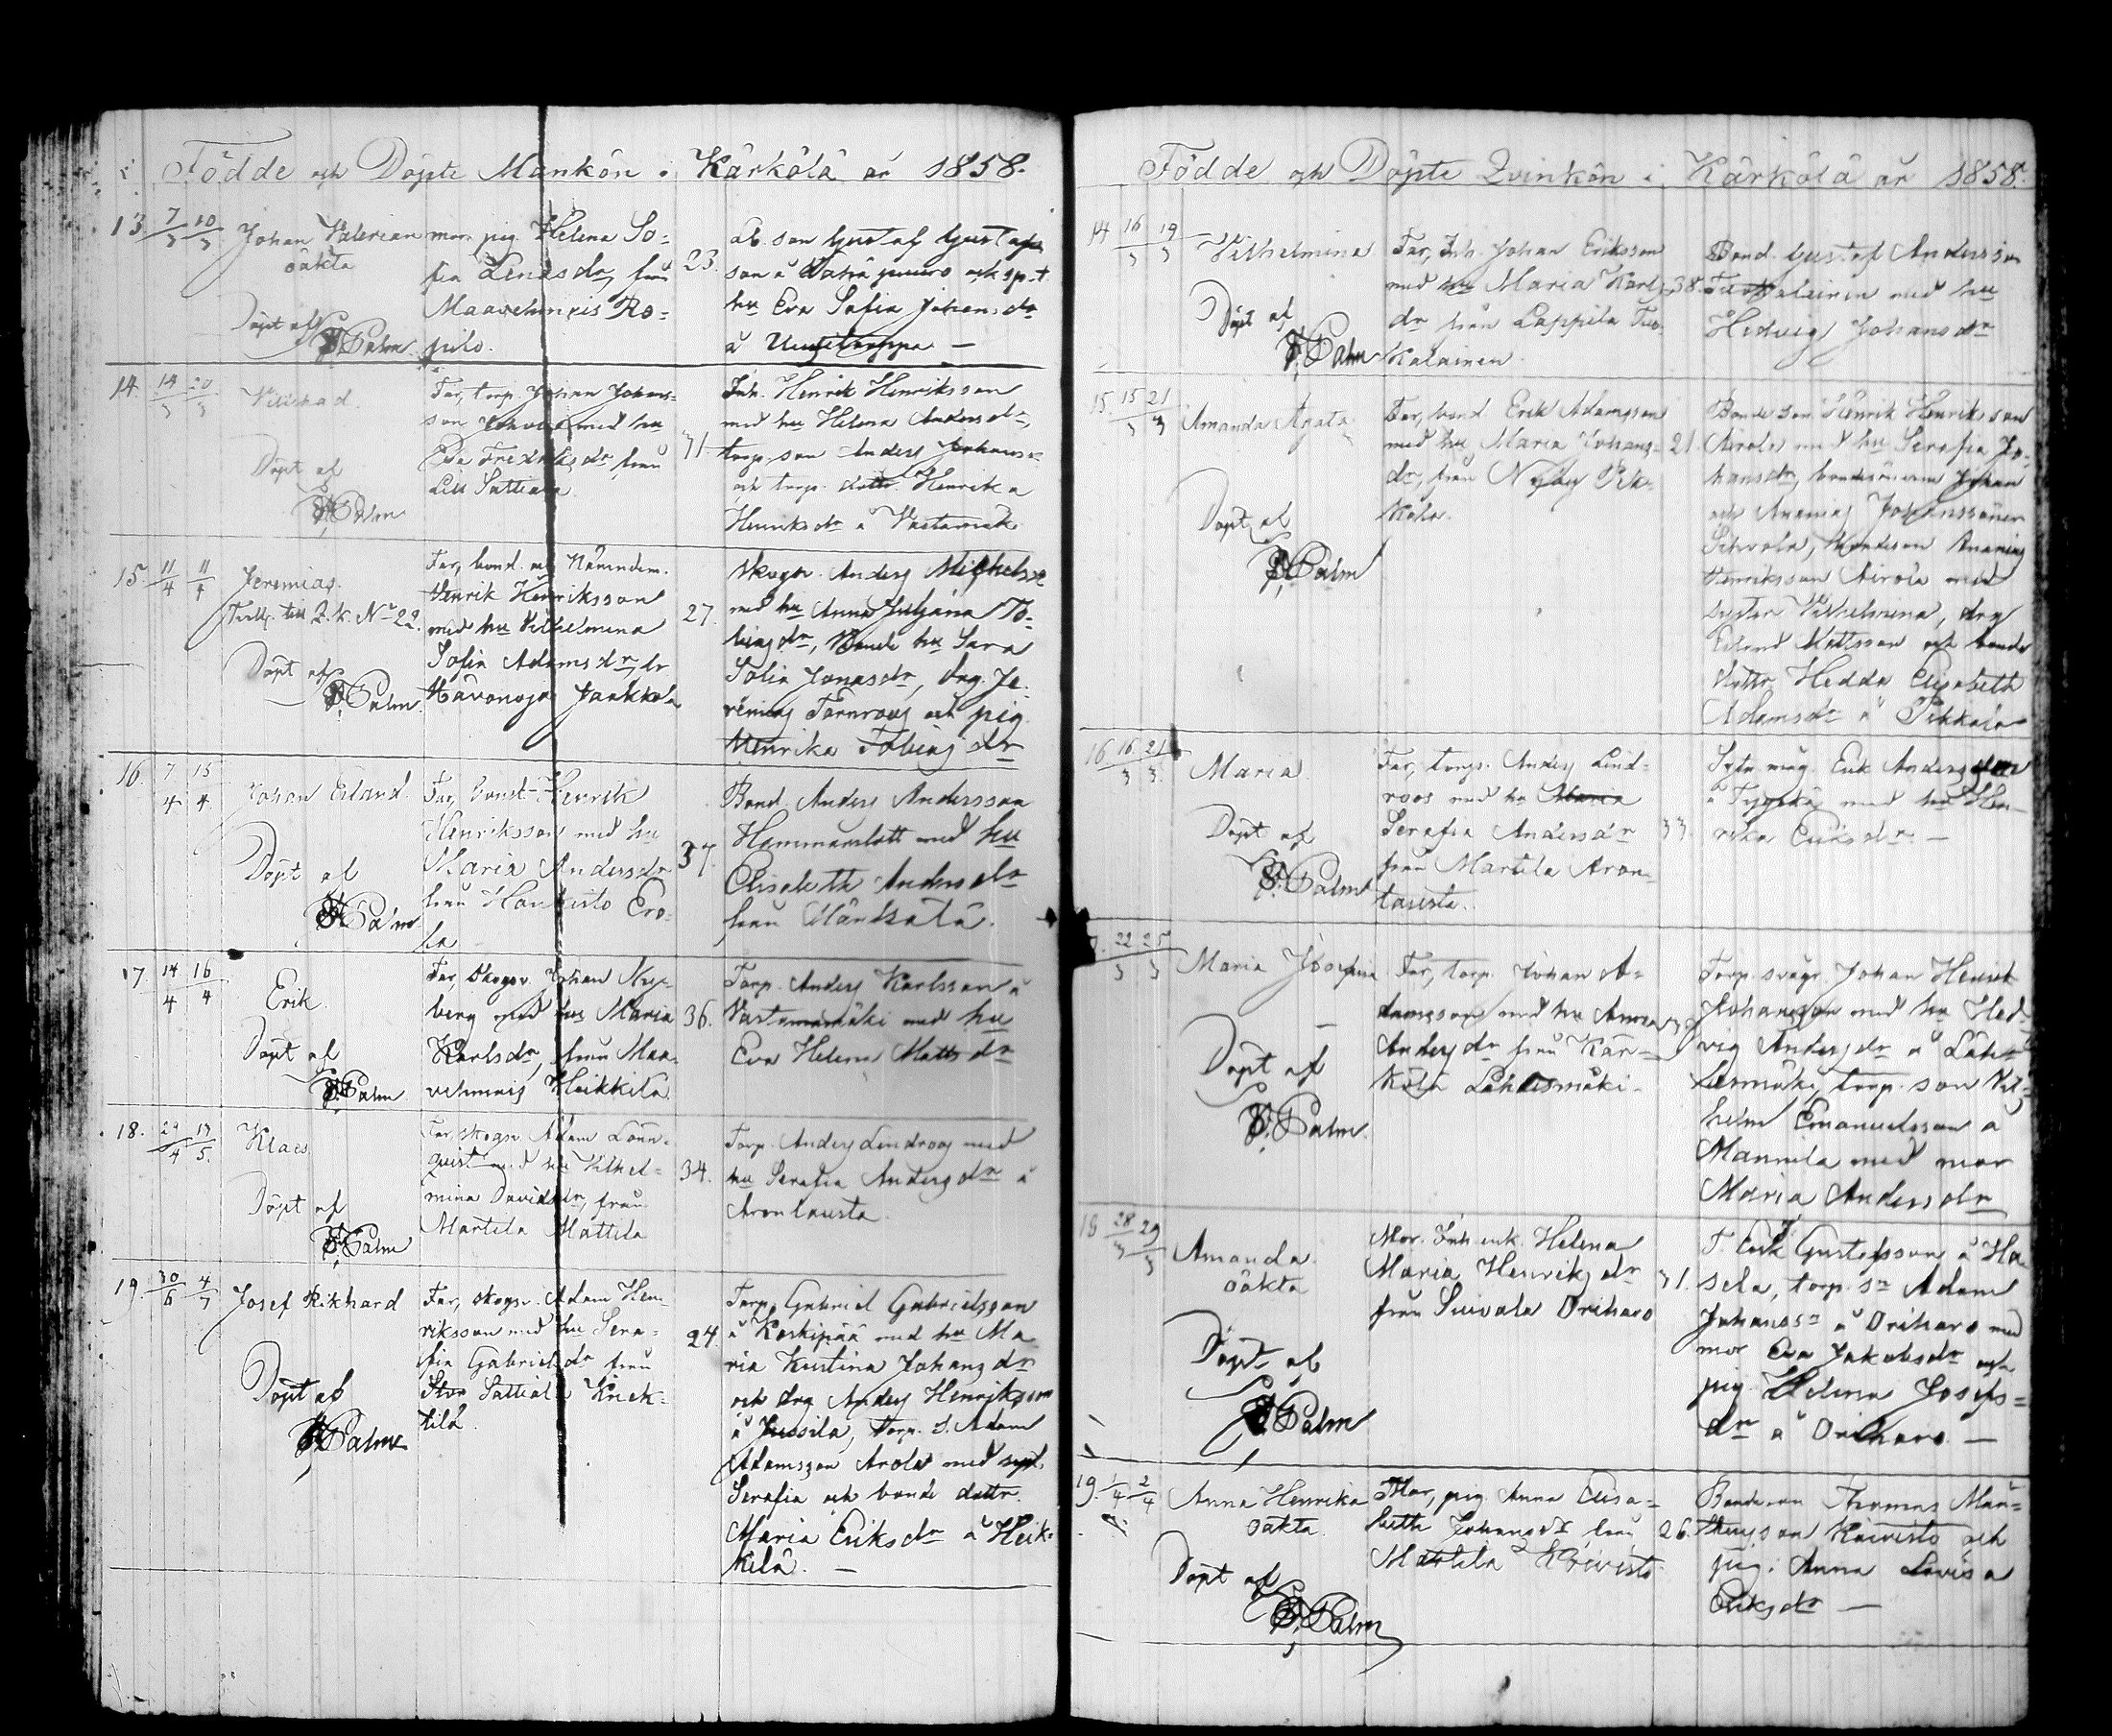 Födde och Döpte Mankön i Kärkölä år 1858.
13. 7/3 10/3 Johan Valerian
oäkta
Döpt af
Palm
mor, pig. Helena So-
fia Lenasdr, från
Maavehmais Ro-
pilo.
23.
son Gustaf Gustafs
son å och
hu Eva Sofia Johansdr
å
14. 14/3 20/3
Döpt af
Palm
Far, torp. Johan Johans-
son med hu
Eva Fredriksdr från
Lill Sattiala
31
Inh. Henrik Henriksson
med hu Helena Andersdr,
torp. son Anders Johanss
och torp. dottr. Henrika
Henriksdr å Vastamäk
15. 11/4 11/4 Jeremias.
till Q.k. No 22.
Döpt af
Palm
Far, bond. och Nämndem.
Henrik Henriksson
med hu Vilhelmina
Sofia Adamsdr,
Hävonoja Jaakkola
27.
Skogv. Anders Michelss
med hu Anna Juliana To-
biasdr, Bonde hu Sara
Sofia Jonasdr, drg. Je-
remias Törnroos och pig.
Henrika Tobiasdr
16. 7/4 15/4 Johan Erland.
Döpt af
Palm
Far, bond. Henrik
Henriksson med hu
Maria Andersdr
från Hongisto Ero-
la
37.
Bond. Anders Andersson
med hu
Elisabeth Andersdr
från Mäntsälä.
17. 14/4 16/4 Erik
Döpt af
Palm
Far, Skogv. Johan Ny-
berg med hu Maria
Karlsdr, från Maa-
vehmais Heikkilä
36.
Torp. Anders Karlsson å
Vastamamäki med hu
Eva Helena Mattsdr
18. 29/4 13/5. Klaes
Döpt af
Palm
Far, skogv. Adam Lönn-
qvist med hu Vilhel-
mina Davidsdr, från
Martila Mattila
34.
Torp. Anders Lindroos med
hu Serafia Andersdr å
Arontausta
19. 30/6 4/7 Josef Rikhard
Döpt af
Palm
Far, skogv. Adam Hen-
riksson med hu Sera-
fia Gabrielsdr från
Stor Sattiala Knek-
tilä.
24.
Torp. Gabriel Gabrielsson
å Koskipää med hu Ma-
ria Kristina Johansdr
och drg Anders Henriksson
å Jussila, torp. s. Adam
Adamsson Arola med syst.
Serafia och bonde dottr.
Maria Eriksdr å Heik-
kilä. —
Födde och Döpte Qvinkön i Kärkölä år 1858.
14 16/3 19/3 Vilhelmina
Döpt af
Palm
Far, Inh. Johan Eriksson
med hu Maria Karls-
dr från Lappila Tuo-
kalainen
38.
Bond. Gustaf Andersson
Tuokalainen med hu
Hedvig Johansdr
15. 15/3 21/3 Amanda Agata
Döpt af
Palm
Far, bond. Erik Adamsson
med hu Maria Johans-
dr, från Nyby Pik-
kala.
21.
Bonde son Henrik Henriksson
Airola med hu Serafia Jo-
hansdr, bondesönerna Johan
och Ananias Johanssöner
Sihvola, bondeson Ananias
Henriksson Airola med
syster Vilhelmina, drg
Erland Mattsson och bonde
dottr Hedda Elisabeth
Adamsdr å Pikkala
16 16/3 21/3. Maria
Döpt af
Palm
Far, torp. Anders Lind-
roos med hu Maria
Serafia Andersdr
från Martila Aron-
tausta.
33.
Sytn. mag. Erik Andersson
å med hu Hen-
rika Eriksdr. —
22/3 25/3 Maria Josefina
Döpt af
Palm
Far, torp. Johan A-
damsson med hu Anna
Andersdr från Kär-
kölä Lähdesmäki.
Torp. svåger Johan Henrik
Johansson med hu Hed-
vig Andersdr å Läh-
desmäki, torp. son Vil-
helm Emanuelsson å
Mannila med mor
Maria Andersdr
18 28/3 29/3 Amanda
oäkta
Döpt af
Palm
Mor, Inh. enk. Helena
Maria Henriksdr
från Suivala Oriharo
31.
T. Erik Gustafsson å Ha-
sela, torp. sn Adam
Johanssn å Oriharo med
mor Eva Jakobsdr och
pig. Helena Josefs-
dr å Oriharo —
19. 1/4 2/4 Anna Henrika
oäkta.
Döpt af
Palm
Mor, pig. Anna Elisa-
beth Johansdr från
Martila Koivisto
26.
Bondeson Thomas Mat-
thiasson Koivisto och
pig. Anna Lovisa
Eriksdr —